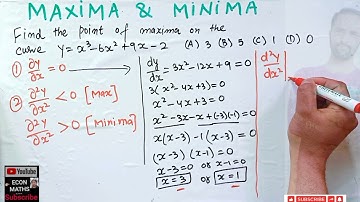 MAXIMA & MINIMA
Find the point of maxima on the
curve y=x³-6x²+9x-2 (A) 3 (B) 5 (C) 1 (D) 0
① ∂y/∂x = 0 →
② ∂²y/∂x² < 0 [Max]
∂²y/∂x² > 0 [Minima]
dy/dx = 3x²-12x+9=0
3(x²-4x+3)=0
x²-4x+3=0
x²-3x-x+(-3)(-1)=0
x(x-3)-1(x-3)=0
(x-3)(x-1)=0
x-3=0 or x-1=0
x=3 or x=1
d²y/dx²
YouTube
ECON
MATHS
Subscribe
SUBSCRIBE